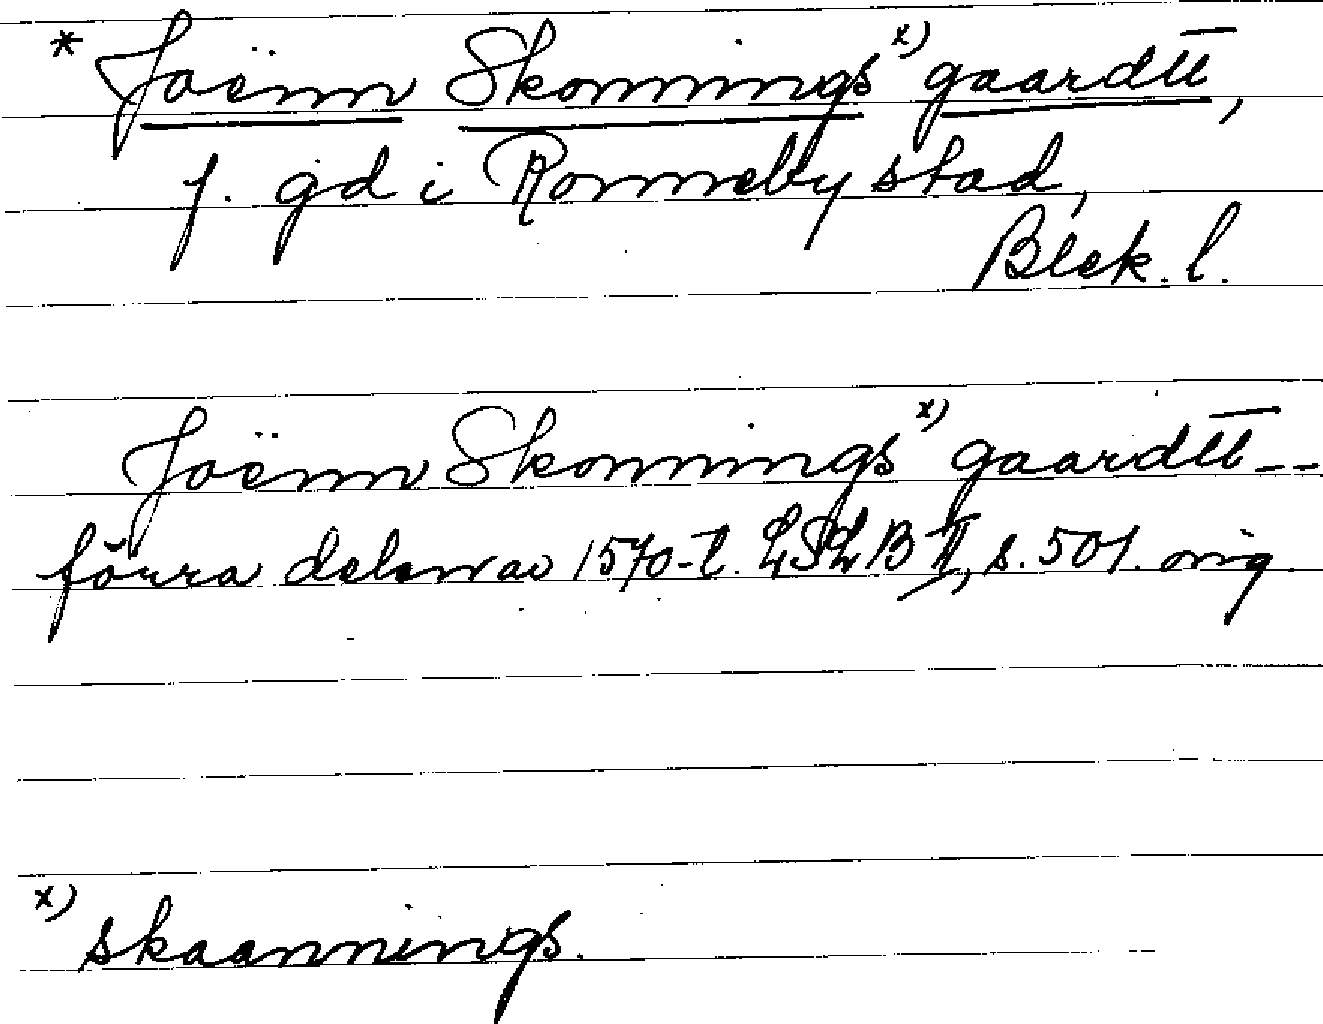 * Joënn Skonnings x) gaardtt,
f. gd i Ronneby stad,
Blek. l.
Joënn Skonnings x) gaardtt --
förra delen av 1570-t. LSLB II, s. 501. orig.
x) skaannings.